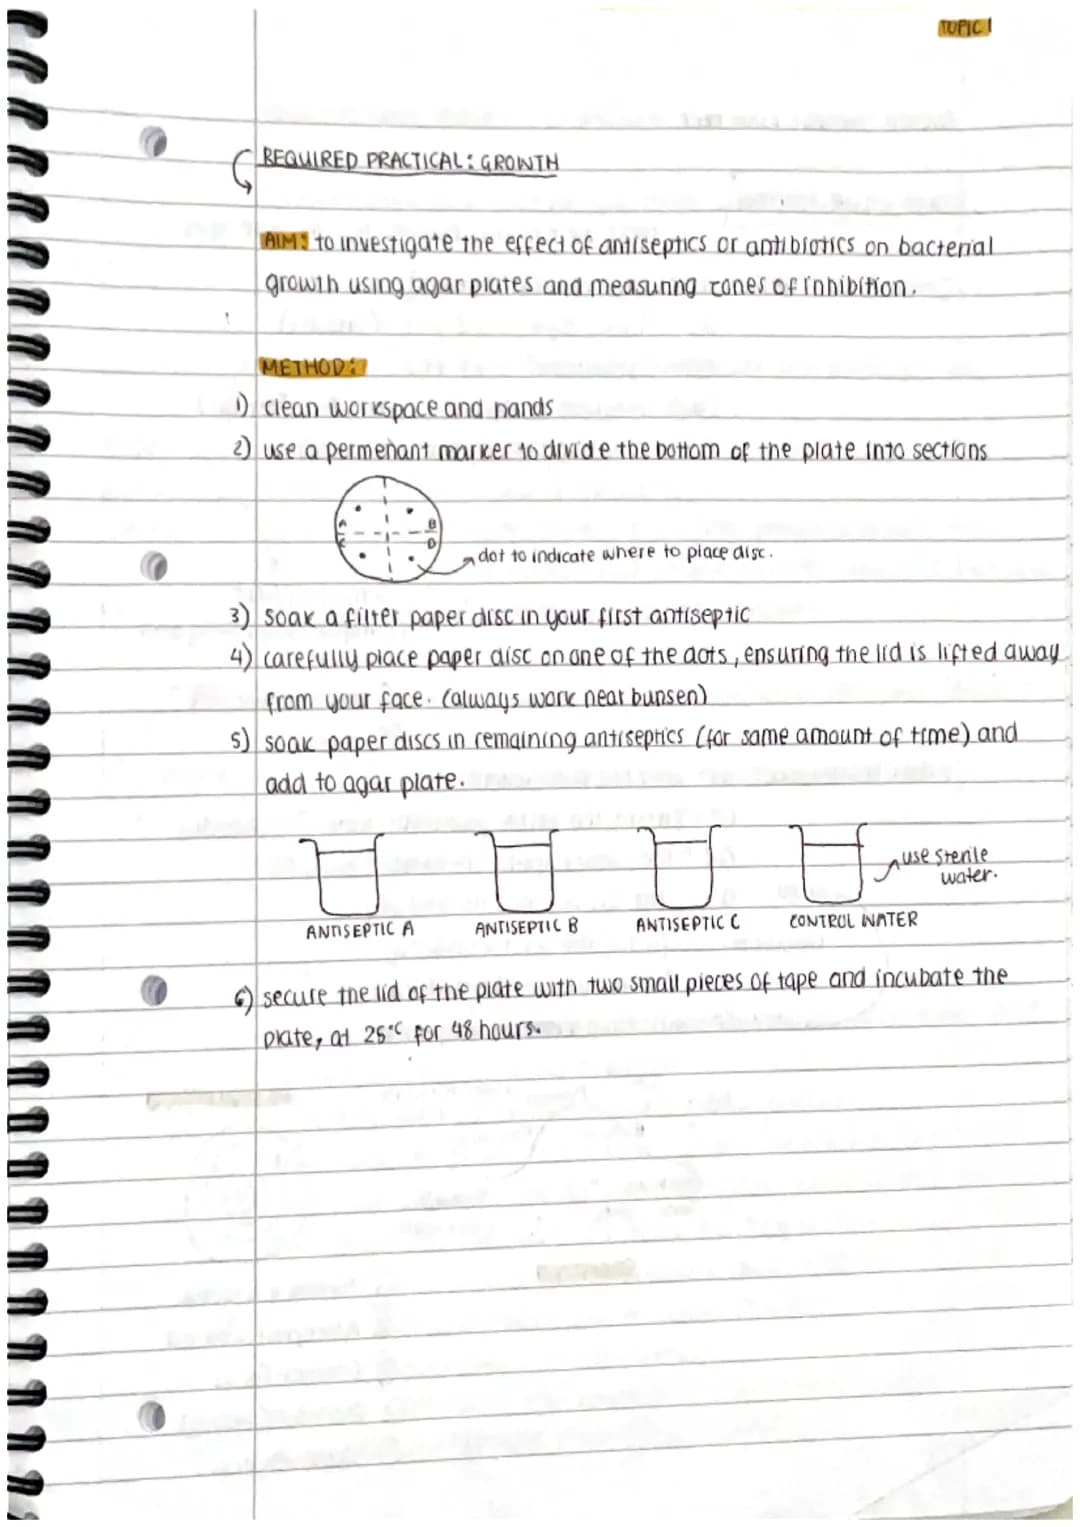 TOPIC 1
REQUIRED PRACTICAL: GROWTH
AIM: to investigate the effect of antiseptics or antibiotics on bacterial
growth using agar plates and measuring zones of inhibition.
METHOD:
1) clean workspace and hands
2) use a permenant marker to divide the bottom of the plate into sections
A B
C D
dot to indicate where to place disc.
3) soak a filter paper disc in your first antiseptic
4) carefully place paper disc on one of the dots, ensuring the lid is lifted away
from your face. (always work near bunsen)
5) soak paper discs in remaining antiseptics (for same amount of time) and
add to agar plate.
use sterile
water.
ANTISEPTIC A ANTISEPTIC B ANTISEPTIC C CONTROL WATER
6) secure the lid of the plate with two small pieces of tape and incubate the
plate, at 25°C for 48 hours.